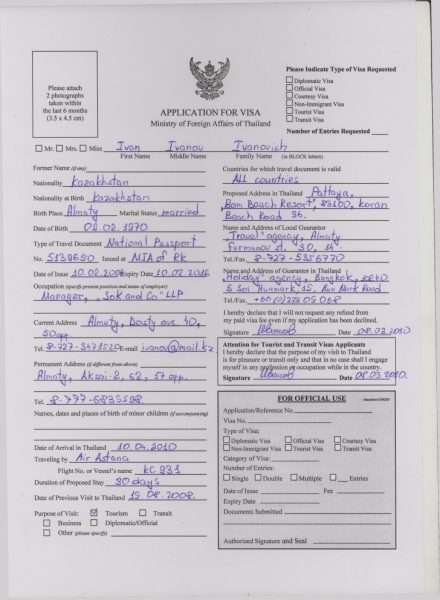 Please attach
2 photographs
taken within
the last 6 months
(3.5 x 4.5 cm)
APPLICATION FOR VISA
Ministry of Foreign Affairs of Thailand
Please Indicate Type of Visa Requested
Diplomatic Visa
Official Visa
Courtesy Visa
Non-Immigrant Visa
Tourist Visa
Transit Visa
Number of Entries Requested
Mr. Mrs. Miss Ivan Ivanov Ivanovich
First Name Middle Name Family Name (in BLOCK letters)
Former Name (if any)
Nationality Kazakhstan
Nationality at Birth kazakhstan
Birth Place Almaty Marital Status married
Date of Birth 04.02.1970
Type of Travel Document National Passport
No. Issued at MIA of RK
Date of Issue 10.02.2006 Expiry Date 10.02.2016
Occupation (specify present position and name of employer)
Manager, "SoK and Co" LLP
Current Address Almaty, Dostyk ave. 40,
50 app.
Tel. E-mail ivanov@mail.kz
Permanent Address (if different from above)
Almaty, Aksai-2, 62, 57 app.
Tel.
Names, dates and places of birth of minor children (if accompanying)
Date of Arrival in Thailand 10.04.2010
Traveling by Air Astana
Flight No. or Vessel's name KC 931
Duration of Proposed Stay 30 days
Date of Previous Visit to Thailand 19.08.2008.
Purpose of Visit: Tourism Transit
Business Diplomatic/Official
Other (please specify)
Countries for which travel document is valid
ALL countries
Proposed Address in Thailand Pattaya,
Beach Resort,
Beach Road 36.
Name and Address of Local Guarantor
"Travel" agency, Almaty
Furmanov st.
Tel./Fax. 8-727-
Name and Address of Guarantor in Thailand
"Holiday" agency, Bangkok,
Road
Tel./Fax.
I hereby declare that I will not request any refund from
my paid visa fee even if my application has been declined.
Signature Date 08.03.2010
Attention for Tourist and Transit Visas Applicants
I hereby declare that the purpose of my visit to Thailand
is for pleasure or transit only and that in no case shall I engage
myself in any profession or occupation while in the country.
Signature Date 08.03.2010.
FOR OFFICIAL USE
Application/Reference No.
Visa No.
Type of Visa:
Diplomatic Visa Official Visa Courtesy Visa
Non-Immigrant Visa Tourist Visa Transit Visa
Category of Visa:
Number of Entries:
Single Double Multiple Entries
Date of Issue Fee
Expiry Date
Documents Submitted
Authorized Signature and Seal